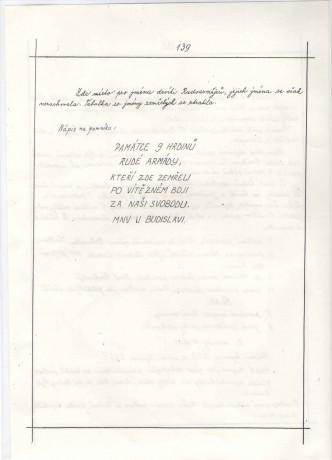 139
Zde místo pro jména devíti Rudoarmějců, jejich jména se však
nezachovala. Tabulka se jmény zemřelých se ztratila.
Nápis na pomníku:
PAMÁTCE 9 HRDINŮ
RUDÉ ARMÁDY,
KTEŘÍ ZDE ZEMŘELI
PO VÍTĚZNÉM BOJI
ZA NAŠI SVOBODU.
MNV V BUDISLAVI.